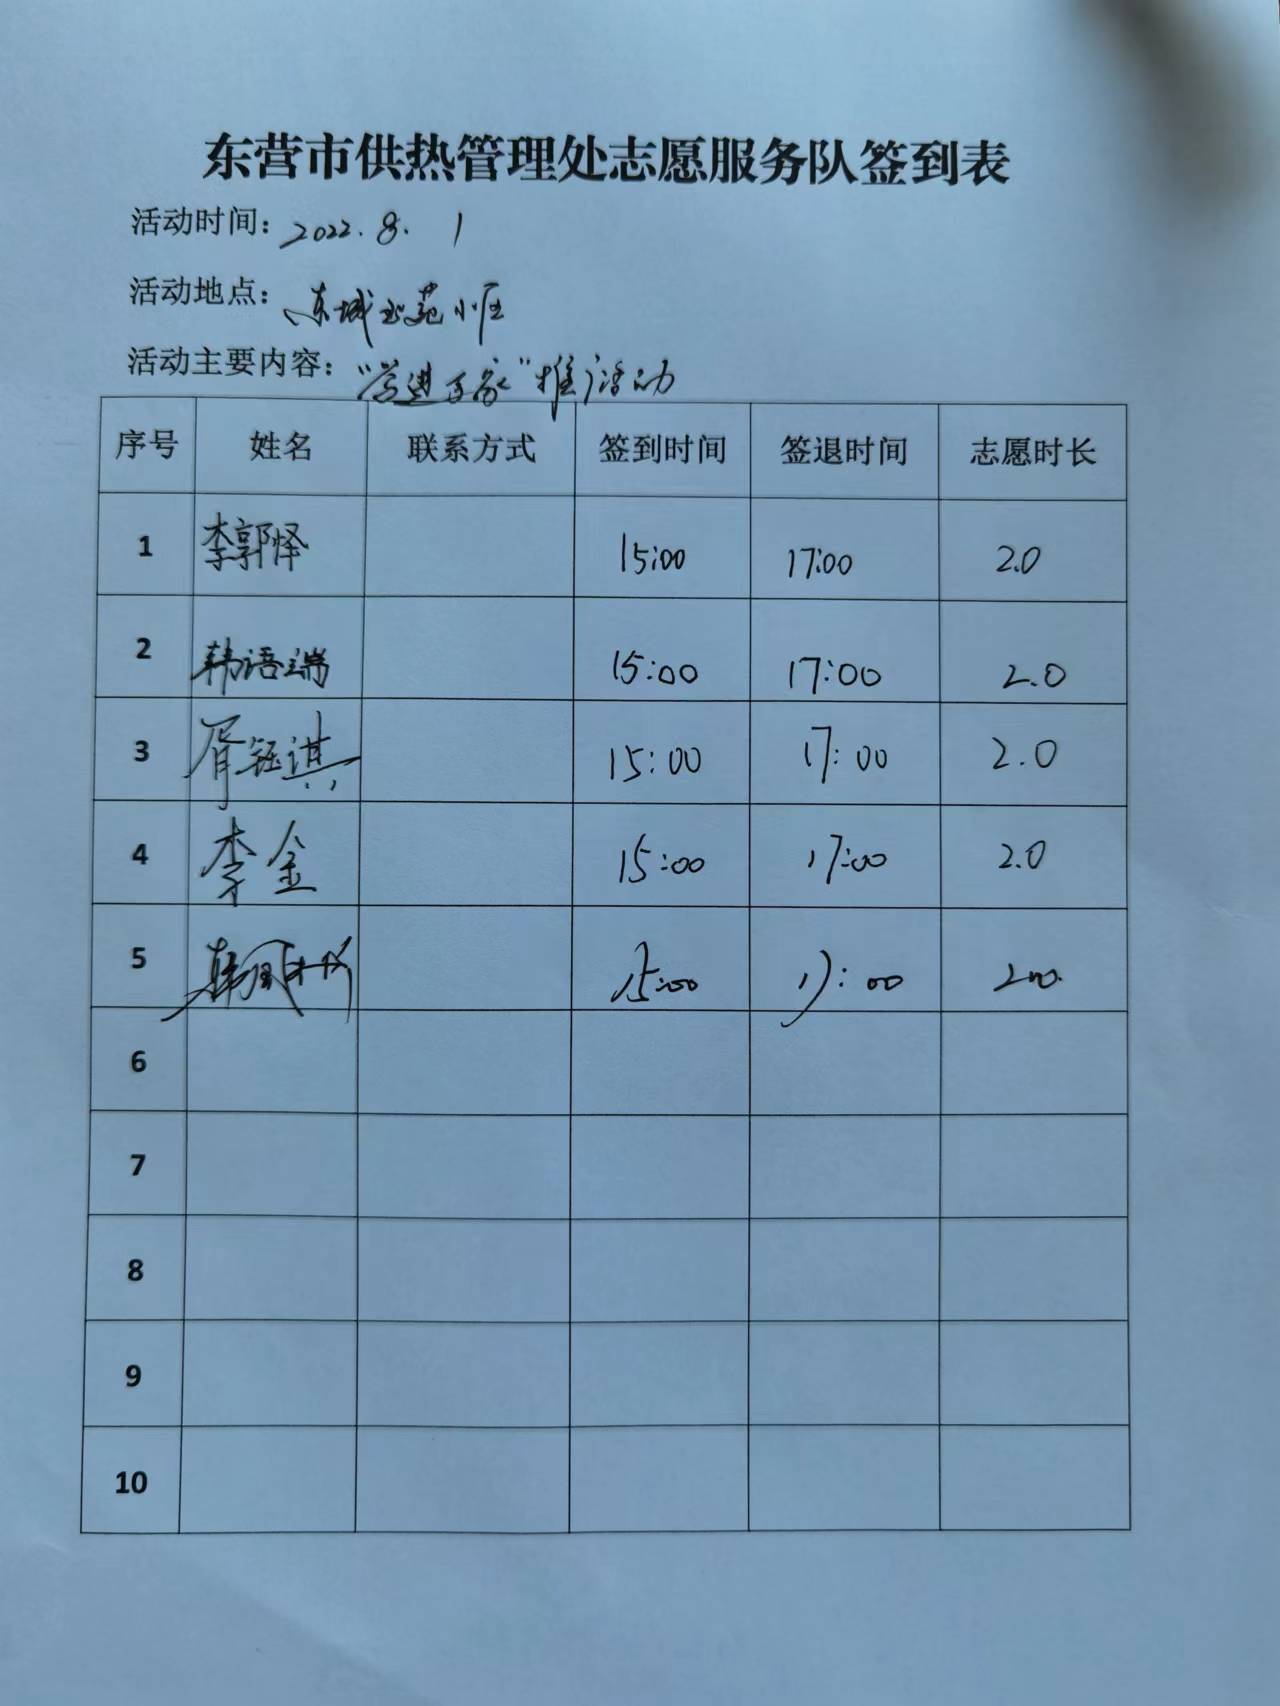 东营市供热管理处志愿服务队签到表
活动时间：2022.8.1
活动地点：东城玉苑小区
活动主要内容：推广活动
序号 姓名 联系方式 签到时间 签退时间 志愿时长
1 李郭怿 15:00 17:00 2.0
2 韩语端 15:00 17:00 2.0
3 胥钰淇 15:00 17:00 2.0
4 李金 15:00 17:00 2.0
5 15:00 17:00 2.0
6
7
8
9
10